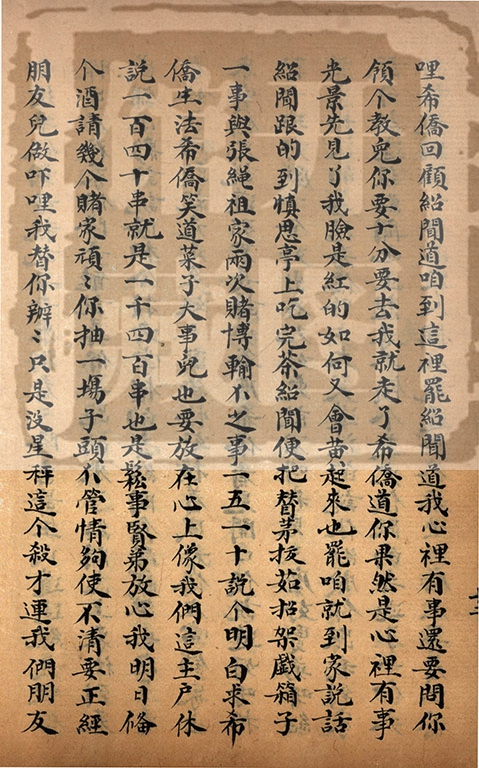 哩希僑回顧紹聞道咱到這裡罷紹聞道我心裡有事還要問你
領个教兒你要十分要去我就走了希僑道你果然是心裡有事
光景先見了我臉是紅的如何又會黄起來也罷咱就到家說話
紹聞跟的到慎思亭上吃完茶紹聞便把替茅拔茹招架戲箱子
一事與張繩祖家兩次賭博輸了之事一五一十說个明白求希
僑生法希僑笑道菜子大事兒也要放在心上像我們這主户休
說一百四十串就是一千四百串也是鬆事賢弟放心我明日俻
个酒請幾个賭家頑〻你抽一場子頭了管情夠使不清要正經
朋友兒做吓哩我替你辦〻只是没星秤這个殺才連我們朋友